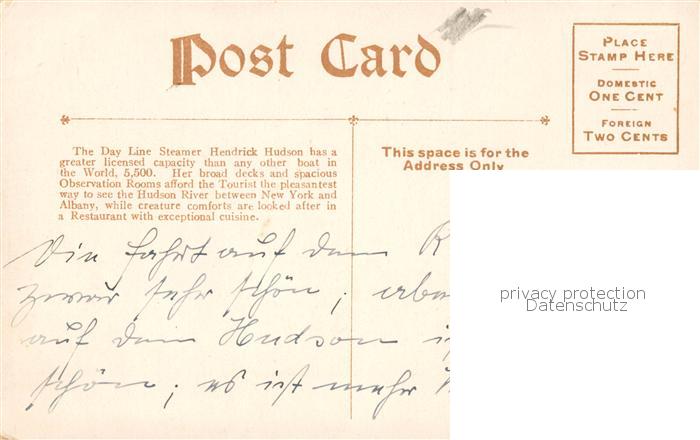 Post Card
PLACE
STAMP HERE
DOMESTIC
ONE CENT
FOREIGN
TWO CENTS
The Day Line Steamer Hendrick Hudson has a
greater licensed capacity than any other boat in
the World, 5,500. Her broad decks and spacious
Observation Rooms afford the Tourist the pleasantest
way to see the Hudson River between New York and
Albany, while creature comforts are looked after in
a Restaurant with exceptional cuisine.
This space is for the
Address Only
Die Fahrt auf dem
zwar sehr schön; aber
auf dem Hudson
schön; es ist mehr
privacy protection
Datenschutz